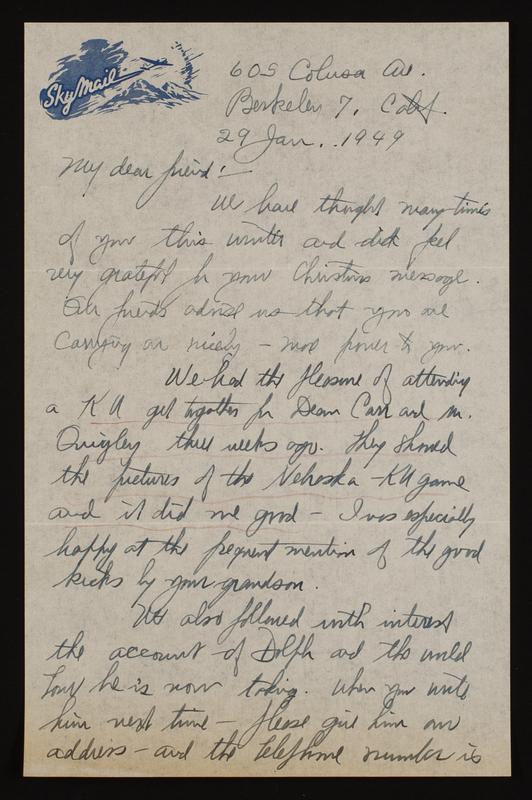 Sky Mail
605 Colusa Av.
Berkeley 7, Calif.
29 Jan. 1949
My dear friend:—
We have thought many times
of you this winter and did feel
very grateful for your Christmas message.
Our friends advise us that you are
carrying on nicely – more power to you.
We had the pleasure of attending
a KU get together for Dean Carr and Mr.
Quigley three weeks ago. They showed
the pictures of the Nebraska – KU game
and it did me good – I was especially
happy at the frequent mention of the good
kicks by your grandson.
We also followed with interest
the account of Dolph and the world
tour he is now taking. When you write
him next time – please give him our
address – and the telephone number is